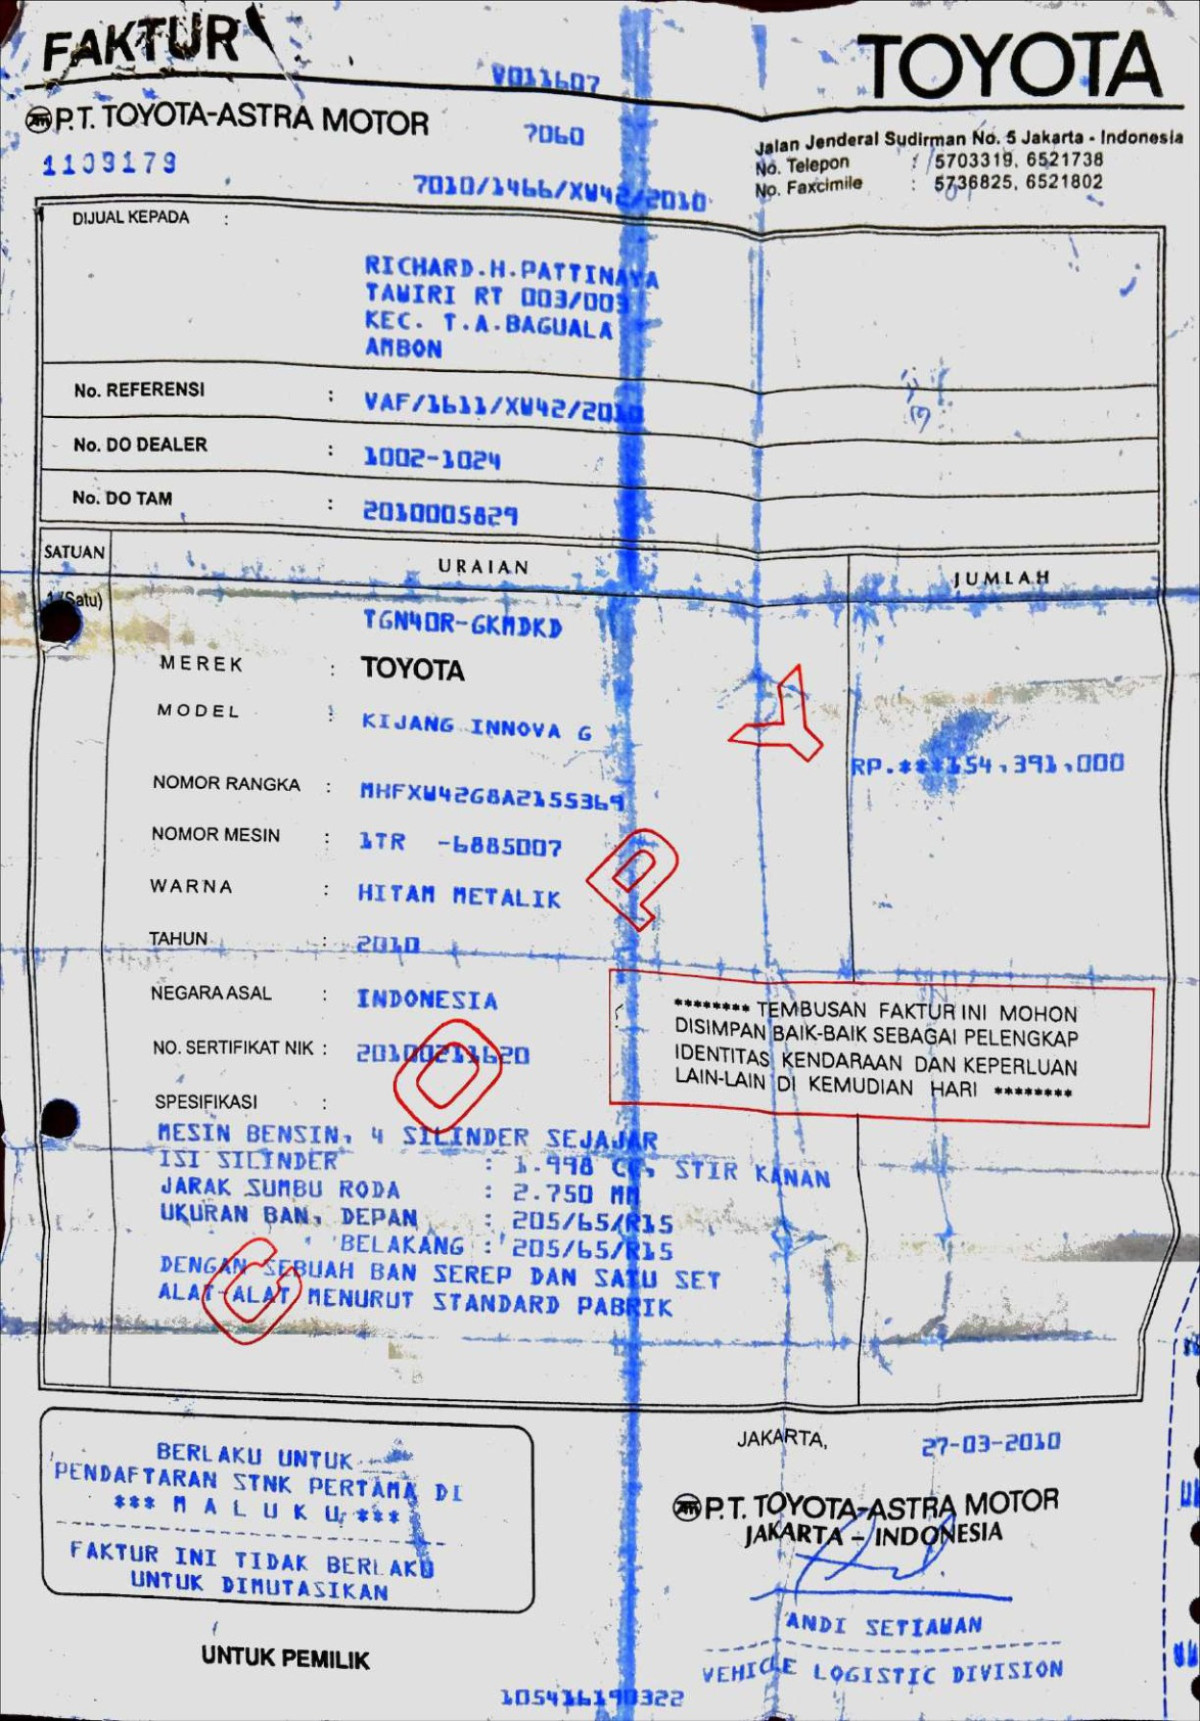 FAKTUR
V011607
TOYOTA
P.T. TOYOTA-ASTRA MOTOR
7060
1109179
7010/1466/XW42/2010
Jalan Jenderal Sudirman No. 5 Jakarta - Indonesia
No. Telepon : 5703319, 6521738
No. Faxcimile : 5736825, 6521802
DIJUAL KEPADA :
RICHARD.H.PATTINAYA
TAWIRI RT 003/003
KEC. T.A.BAGUALA
AMBON
No. REFERENSI : VAF/1611/XW42/2010
No. DO DEALER : 1002-1024
No. DO TAM : 2010005829
SATUAN URAIAN JUMLAH
1 (Satu)
TGN40R-GKMDKD
MEREK : TOYOTA
MODEL : KIJANG INNOVA G
RP.***154,391,000
NOMOR RANGKA : MHFXW42G8A2155369
NOMOR MESIN : 1TR -6885007
WARNA : HITAM METALIK
TAHUN : 2010
NEGARA ASAL : INDONESIA
NO. SERTIFIKAT NIK : 20100211620
******** TEMBUSAN FAKTUR INI MOHON
DISIMPAN BAIK-BAIK SEBAGAI PELENGKAP
IDENTITAS KENDARAAN DAN KEPERLUAN
LAIN-LAIN DI KEMUDIAN HARI ********
SPESIFIKASI :
MESIN BENSIN, 4 SILINDER SEJAJAR
ISI SILINDER : 1.998 CC, STIR KANAN
JARAK SUMBU RODA : 2.750 MM
UKURAN BAN, DEPAN : 205/65/R15
BELAKANG : 205/65/R15
DENGAN SEBUAH BAN SEREP DAN SATU SET
ALAT-ALAT MENURUT STANDARD PABRIK
COPY
BERLAKU UNTUK
PENDAFTARAN STNK PERTAMA DI
*** M A L U K U ***
FAKTUR INI TIDAK BERLAKU
UNTUK DIMUTASIKAN
UNTUK PEMILIK
JAKARTA, 27-03-2010
P.T. TOYOTA-ASTRA MOTOR
JAKARTA - INDONESIA
ANDI SETIAWAN
VEHICLE LOGISTIC DIVISION
105416190322